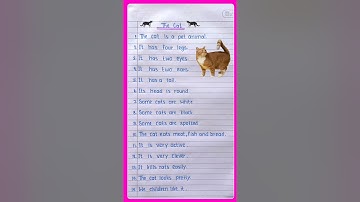 The Cat
1. The cat is a pet animal.
2. It has four legs.
3. It has two eyes.
4. It has two ears.
5. It has a tail.
6. Its head is round.
7. Some cats are white.
8. Some cats are black.
9. Some cats are spotted.
10. The cat eats meat, fish and bread.
11. It is very active.
12. It is very clever.
13. It kills rats easily.
14. The cat looks pretty.
15. We children like it.